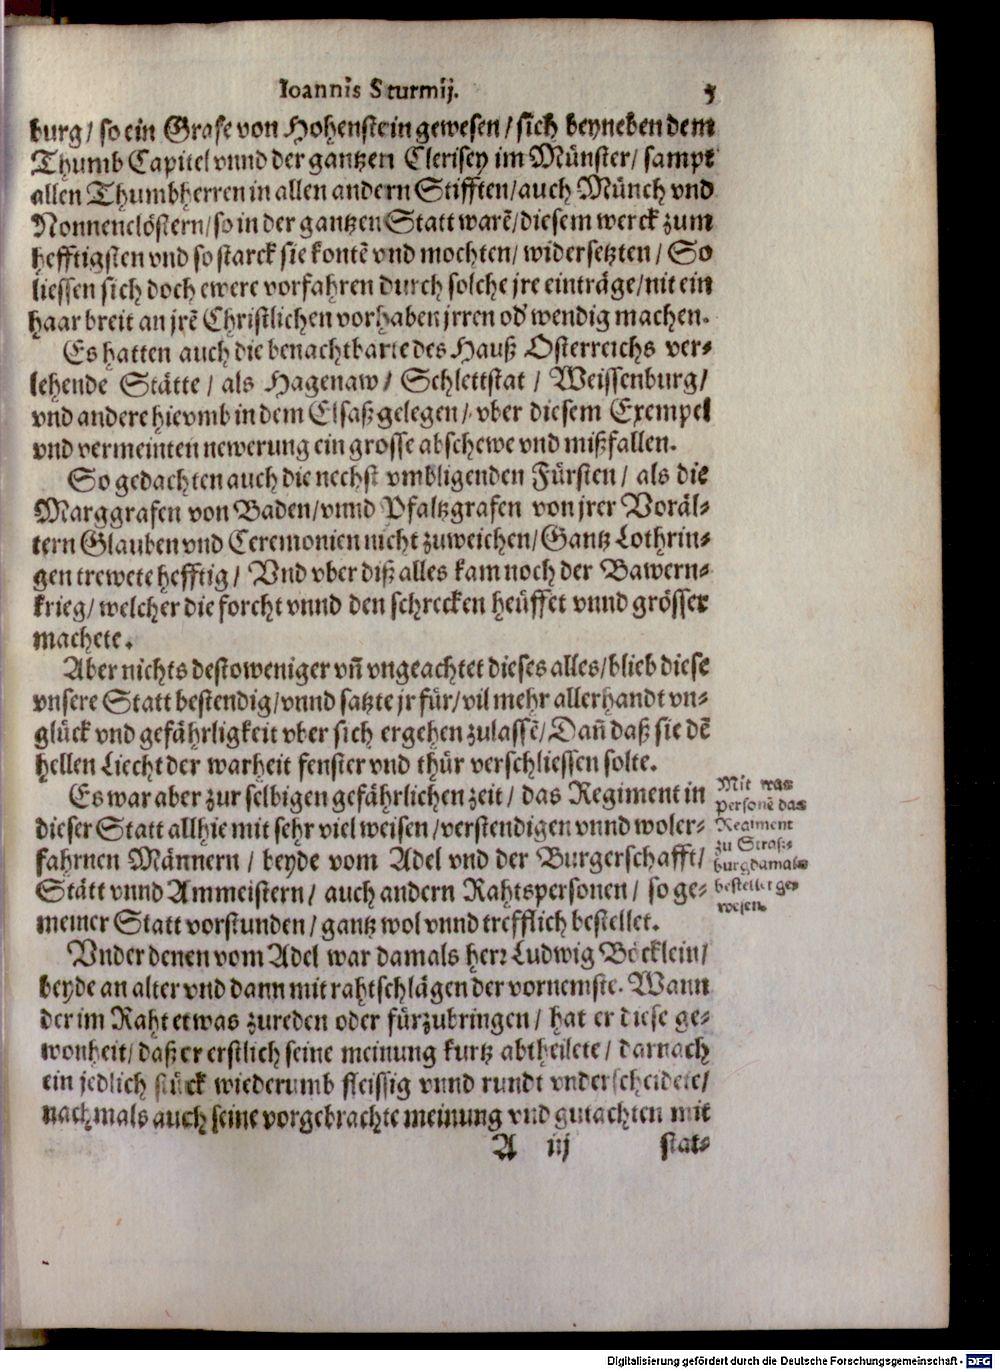 Ioannis Sturmij. 5
burg/ so ein Grafe von Hohenstein gewesen/ sich beyneben dem
Thumb Capitel vnnd der gantzen Clerisey im Münster/ sampt
allen Thumbherren in allen andern Stifften/ auch Münch vnd
Nonnenclöstern/ so in der gantzen Statt warẽ/ diesem werck zum
hefftigsten vnd so starck sie kontẽ vnd mochten/ widersetzten/ So
liessen sich doch ewere vorfahren durch solche jre einträge/ nit ein
haar breit an jrẽ Christlichen vorhaben jrren od' wendig machen.
Es hatten auch die benachtbarte des Hauß Osterreichs ver-
lehende Stätte/ als Hagenaw/ Schlettstat/ Weissenburg/
vnd andere hievmb in dem Elsaß gelegen/ vber diesem Exempel
vnd vermeinten newerung ein grosse abschewe vnd mißfallen.
So gedachten auch die nechst vmbligenden Fürsten/ als die
Marggrafen von Baden/ vnnd Pfaltzgrafen von jrer Voräl-
tern Glauben vnd Ceremonien nicht zuweichen/ Gantz Lothrin-
gen trewete hefftig/ Vnd vber diß alles kam noch der Bawern-
krieg/ welcher die forcht vnnd den schrecken heüffet vnnd grösser
machete.
Aber nichts destoweniger vñ vngeachtet dieses alles/ blieb diese
vnsere Statt bestendig/ vnnd satzte jr für/ vil mehr allerhandt vn-
glück vnd gefährligkeit vber sich ergehen zulassẽ/ Dañ daß sie dẽ
hellen Liecht der warheit fenster vnd thür verschliessen solte.
Es war aber zur selbigen gefährlichen zeit/ das Regiment in
dieser Statt allhie mit sehr viel weisen/ verstendigen vnnd woler-
fahrnen Männern/ beyde vom Adel vnd der Burgerschafft/
Stätt vnnd Ammeistern/ auch andern Rahtspersonen/ so ge-
meiner Statt vorstunden/ gantz wol vnnd trefflich bestellet.
Mit was
personẽ das
Regiment
zu Straß-
burg damals
bestellet ge-
wesen.
Vnder denen vom Adel war damals herr Ludwig Böcklein/
beyde an alter vnd dann mit rahtschlägen der vornemste. Wann
der im Raht etwas zureden oder fürzubringen/ hat er diese ge-
wonheit/ daß er erstlich seine meinung kurtz abtheilete/ darnach
ein jedlich stück wiederumb fleissig vnnd rundt vnderscheidete/
nachmals auch seine vorgebrachte meinung vnd gutachten mit
A iij stat-
Digitalisierung gefördert durch die Deutsche Forschungsgemeinschaft - DFG